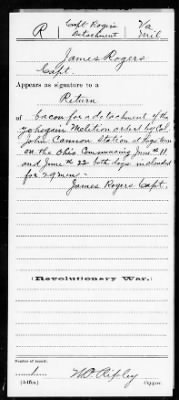 R | Capt Rogers Detachment | Va Mil.
James Rogers
Capt.
Appears as signature to a
Return
of bacon for a detachment of the
Yohogain Meletion ordert by Col.
John Cannon Station at Logs town
on the Ohio Commancing June th 11
and June th 22 both days included
for 29 men -
James Rogers Capt.
(Revolutionary War.)
Number of record:
1
W.D. Ripley
(545a)
Copyist.